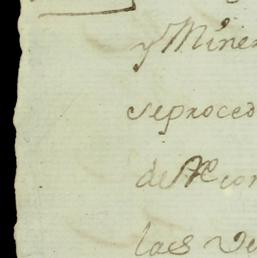 y Miner
se proced
de Me con
las De